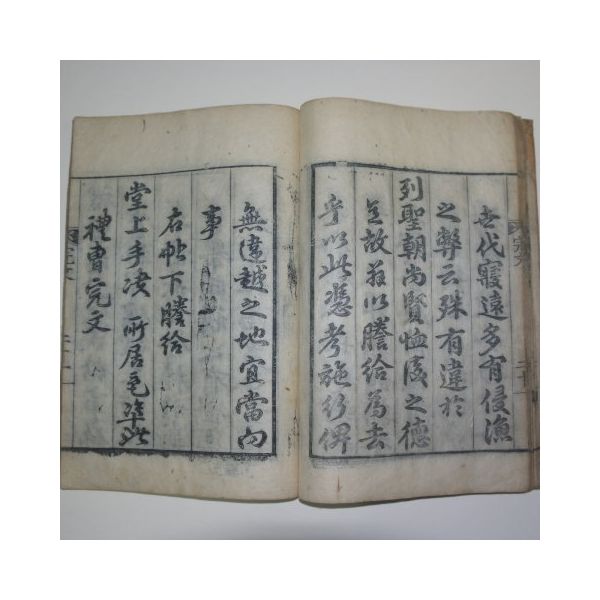 世代寢遠多有侵漁
之弊云殊有違於
列聖朝尚賢恤後之德
是故玆以謄給為去
乎以此憑考施行俾
無違越之地宜當向
事
右帖下謄給
堂上手决 所居邑準此
禮曹完文